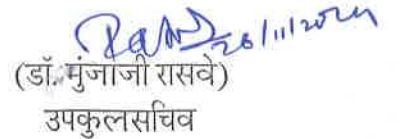 26/11/2024
(डॉ. मुंजाजी रासवे)
उपकुलसचिव